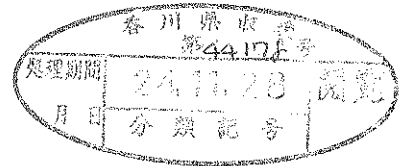 香川県収受
第44178号
処理期間 24.11.28 閲覧
月 日 分類記号